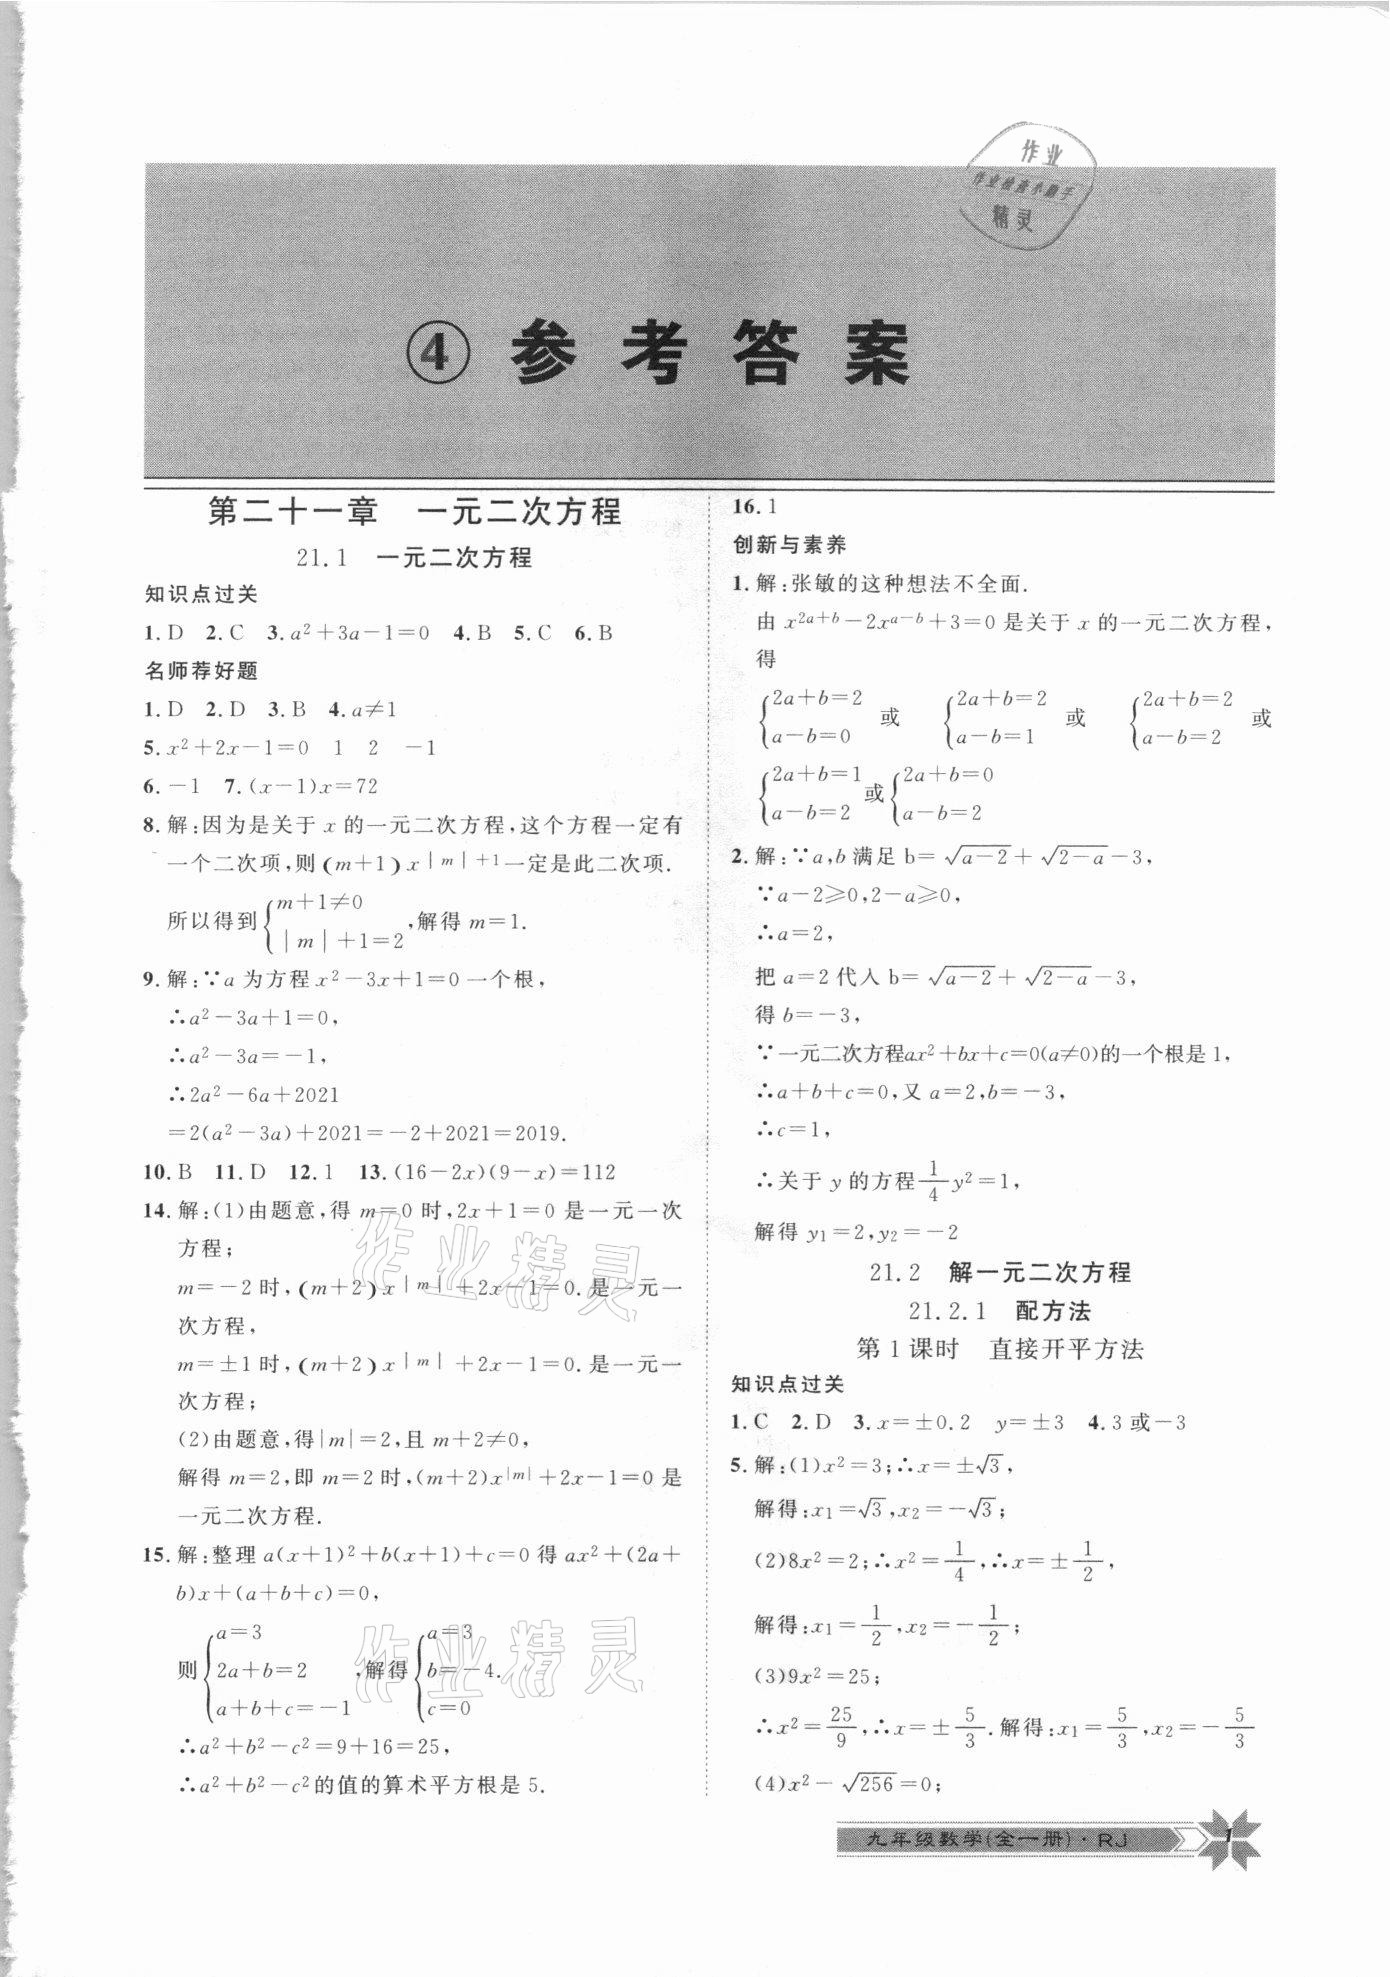 作业
作业检查小助手
精灵
④ 参考答案
第二十一章 一元二次方程
21.1 一元二次方程
知识点过关
1.D 2.C 3.a²+3a-1=0 4.B 5.C 6.B
名师荐好题
1.D 2.D 3.B 4.a≠1
5.x²+2x-1=0 1 2 -1
6.-1 7.(x-1)x=72
8.解:因为是关于 x 的一元二次方程,这个方程一定有
一个二次项,则(m+1)x|m|+1一定是此二次项.
所以得到{m+1≠0
|m|+1=2,解得 m=1.
9.解:∵a 为方程 x²-3x+1=0 一个根,
∴a²-3a+1=0,
∴a²-3a=-1,
∴2a²-6a+2021
=2(a²-3a)+2021=-2+2021=2019.
10.B 11.D 12.1 13.(16-2x)(9-x)=112
14.解:(1)由题意,得 m=0 时,2x+1=0 是一元一次
方程;
m=-2 时,(m+2)x|m|+2x-1=0.是一元一
次方程,
m=±1 时,(m+2)x|m|+2x-1=0.是一元一
次方程;
(2)由题意,得|m|=2,且 m+2≠0,
解得 m=2,即 m=2 时,(m+2)x|m|+2x-1=0 是
一元二次方程.
15.解:整理 a(x+1)²+b(x+1)+c=0 得 ax²+(2a+
b)x+(a+b+c)=0,
则{a=3
2a+b=2
a+b+c=-1
,解得{a=3
b=-4.
c=0
∴a²+b²-c²=9+16=25,
∴a²+b²-c²的值的算术平方根是 5.
16.1
创新与素养
1.解:张敏的这种想法不全面.
由 x²ᵃ⁺ᵇ-2xᵃ⁻ᵇ+3=0 是关于 x 的一元二次方程,
得
{2a+b=2
a-b=0 或 {2a+b=2
a-b=1 或 {2a+b=2
a-b=2 或
{2a+b=1
a-b=2 或{2a+b=0
a-b=2
2.解:∵a,b 满足 b=√a-2+√2-a-3,
∵a-2⩾0,2-a⩾0,
∴a=2,
把 a=2 代人 b=√a-2+√2-a-3,
得 b=-3,
∵一元二次方程ax²+bx+c=0(a≠0)的一个根是 1,
∴a+b+c=0,又 a=2,b=-3,
∴c=1,
∴关于 y 的方程1/4y²=1,
解得 y₁=2,y₂=-2
21.2 解一元二次方程
21.2.1 配方法
第 1 课时 直接开平方法
知识点过关
1.C 2.D 3.x=±0.2 y=±3 4.3 或-3
5.解:(1)x²=3;∴x=±√3,
解得:x₁=√3,x₂=-√3;
(2)8x²=2;∴x²=1/4,∴x=±1/2,
解得:x₁=1/2,x₂=-1/2;
(3)9x²=25;
∴x²=25/9,∴x=±5/3.解得:x₁=5/3,x₂=-5/3
(4)x²-√256=0;
作业精灵
作业精灵
九年级数学(全一册)·RJ
1